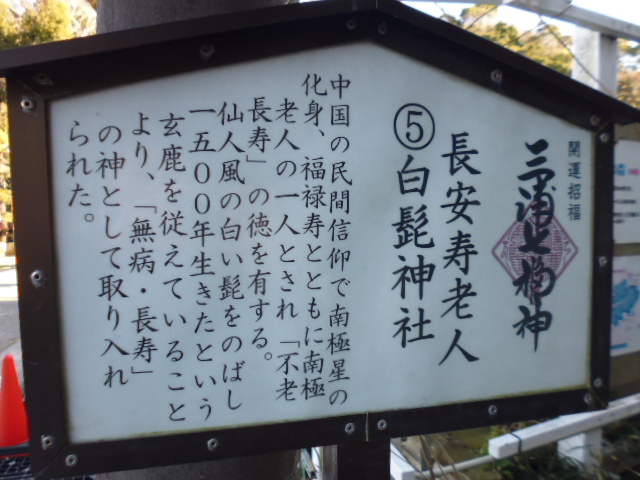 開運招福
三浦七福神
長安寿老人
⑤白髭神社
中国の民間信仰で南極星の
化身、福禄寿とともに南極
老人の一人とされ「不老
長寿」の徳を有する。
仙人風の白い髭をのばし
一五〇〇年生きたという
玄鹿を従えていること
より、「無病・長寿」
の神として取り入れ
られた。